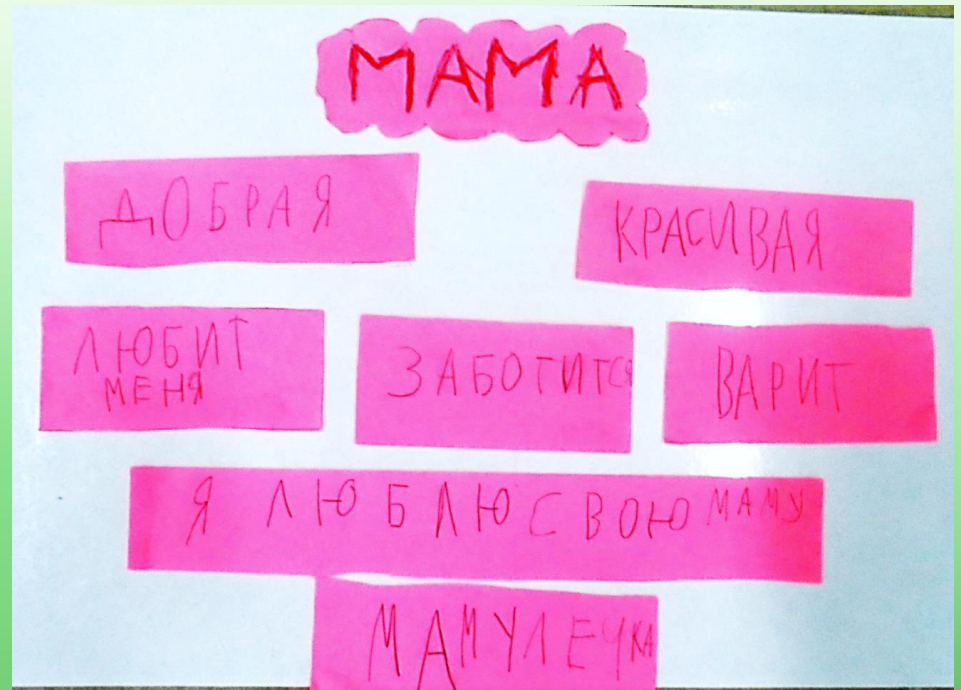 МАМА
ДОБРАЯ
КРАСИВАЯ
ЛЮБИТ
МЕНЯ
ЗАБОТИТСЯ
ВАРИТ
Я ЛЮБЛЮ СВОЮ МАМУ
МАМУЛЕЧКА